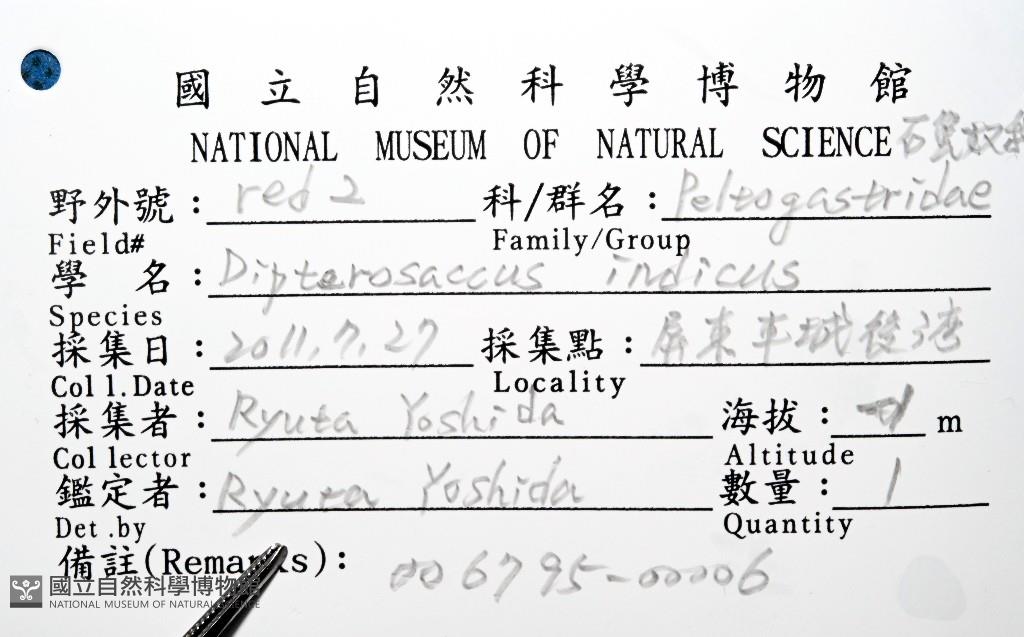 國立自然科學博物館
NATIONAL MUSEUM OF NATURAL SCIENCE
野外號：red 2 科/群名：Peltogastridae
Field# Family/Group
學 名：Dipterosaccus indicus
Species
採集日：2011.7.27 採集點：屏東車城後灣
Coll.Date Locality
採集者：Ryuta Yoshida 海拔：-1 m
Collector Altitude
鑑定者：Ryuta Yoshida 數量：1
Det.by Quantity
備註(Remarks)：006795-00006
國立自然科學博物館
NATIONAL MUSEUM OF NATURAL SCIENCE